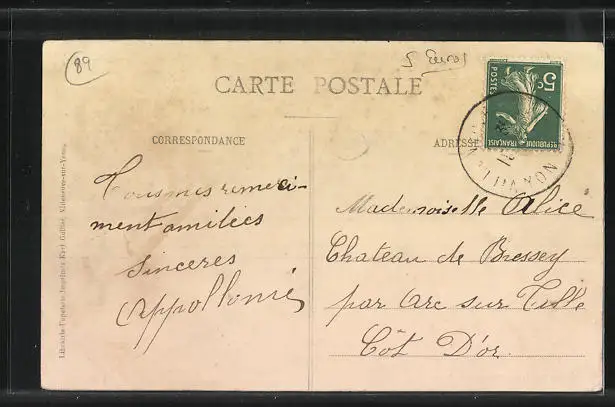 89
5 Euros
CARTE POSTALE
CORRESPONDANCE
ADRESSE
5c
POSTES
REPUBLIQUE FRANÇAISE
YONNE
Tous mes remerci-
ment amitiées
Sinceres
Appollonie
Mademoiselle Alice
Chateau de Bressey
par Arc sur Tille
Côt D'or.
Librairie-Papeterie-Imprimerie Villeneuve-sur-Yonne